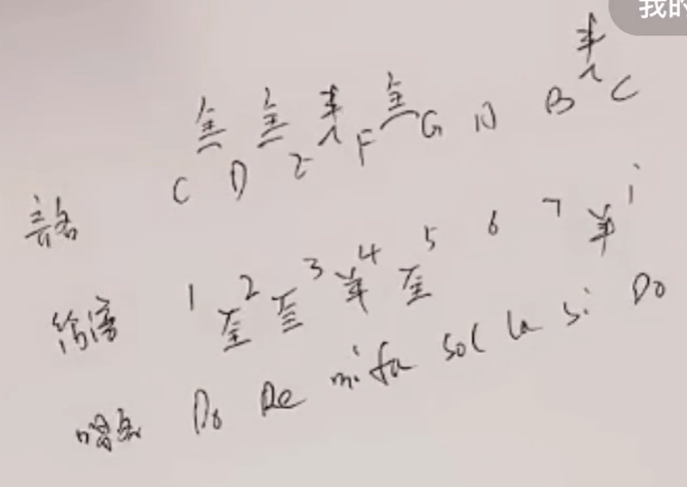 我的
全 全 半 全 半
C D E F G A B C
音名
1 全 2 全 3 半 4 全 5 6 7 半 i
简谱
唱名 Do Re mi fa sol la si Do